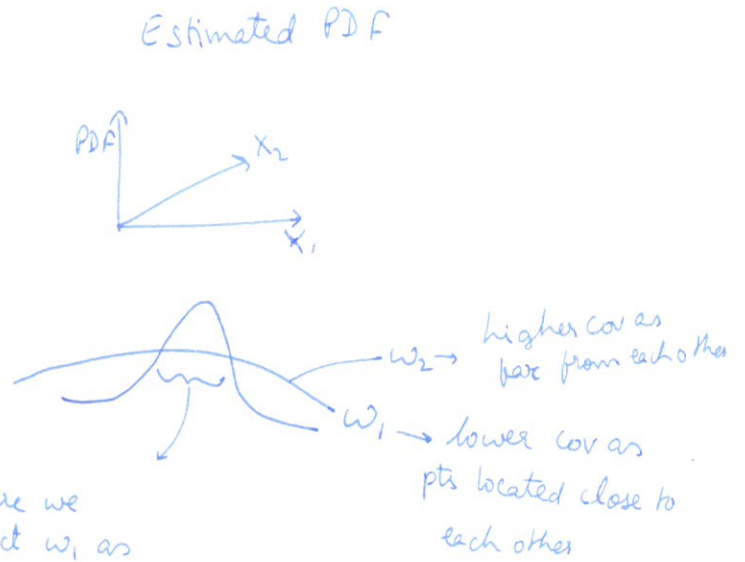 Estimated PDF
PDF
X2
X1
ω2 → higher cov as
far from each other
ω1 → lower cov as
pts located close to
each other
we
ω1 as